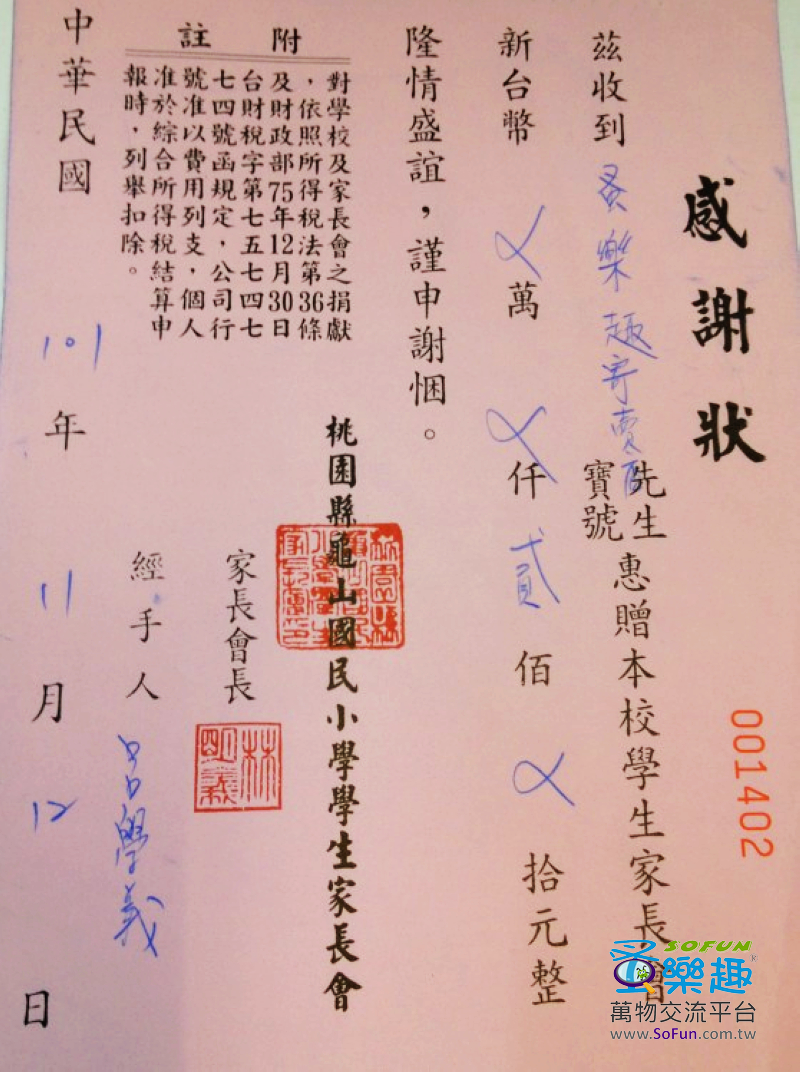 感謝狀
茲收到蚤樂趣寄賣商
先生
寶號
惠贈本校學生家長會
新台幣ㄨ萬ㄨ仟貳佰ㄨ拾元整
隆情盛誼，謹申謝悃。
桃園縣龜山國民小學學生家長會
家長會長
林
明義
經手人 呂學義
附註
對學校及家長會之捐獻
，依照所得稅法第36條
及財政部75年12月30日
台財稅字第七五七四七
七四號函規定，公司行
號准以費用列支，個人
准於綜合所得稅結算申
報時，列舉扣除。
中華民國101年11月12日
001402
SOFUN
蚤樂趣
萬物交流平台
www.SoFun.com.tw